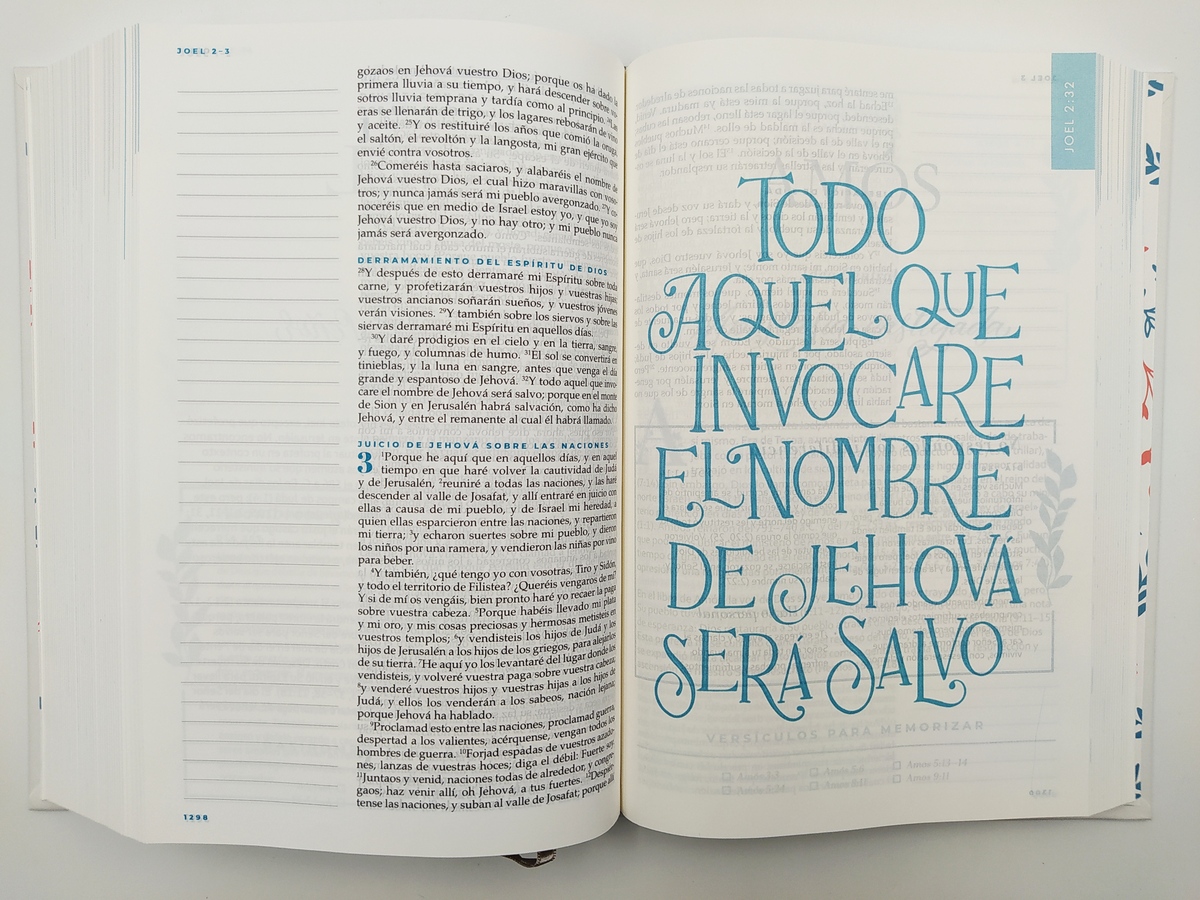 JOEL 2-3
gozaos en Jehová vuestro Dios; porque os ha dado la
primera lluvia a su tiempo, y hará descender sobre vo-
sotros lluvia temprana y tardía como al principio. ²⁴Las
eras se llenarán de trigo, y los lagares rebosarán de vino
y aceite. ²⁵Y os restituiré los años que comió la oruga,
el saltón, el revoltón y la langosta, mi gran ejército que
envié contra vosotros.
²⁶Comeréis hasta saciaros, y alabaréis el nombre de
Jehová vuestro Dios, el cual hizo maravillas con voso-
tros; y nunca jamás será mi pueblo avergonzado. ²⁷Y co-
noceréis que en medio de Israel estoy yo, y que yo soy
Jehová vuestro Dios, y no hay otro; y mi pueblo nunca
jamás será avergonzado.
DERRAMAMIENTO DEL ESPÍRITU DE DIOS
²⁸Y después de esto derramaré mi Espíritu sobre toda
carne, y profetizarán vuestros hijos y vuestras hijas;
vuestros ancianos soñarán sueños, y vuestros jóvenes
verán visiones. ²⁹Y también sobre los siervos y sobre las
siervas derramaré mi Espíritu en aquellos días.
³⁰Y daré prodigios en el cielo y en la tierra, sangre,
y fuego, y columnas de humo. ³¹El sol se convertirá en
tinieblas, y la luna en sangre, antes que venga el día
grande y espantoso de Jehová. ³²Y todo aquel que invo-
care el nombre de Jehová será salvo; porque en el monte
de Sion y en Jerusalén habrá salvación, como ha dicho
Jehová, y entre el remanente al cual él habrá llamado.
JUICIO DE JEHOVÁ SOBRE LAS NACIONES
3 ¹Porque he aquí que en aquellos días, y en aquel
tiempo en que haré volver la cautividad de Judá
y de Jerusalén, ²reuniré a todas las naciones, y las haré
descender al valle de Josafat, y allí entraré en juicio con
ellas a causa de mi pueblo, y de Israel mi heredad, a
quien ellas esparcieron entre las naciones, y repartieron
mi tierra; ³y echaron suertes sobre mi pueblo, y dieron
los niños por una ramera, y vendieron las niñas por vino
para beber.
⁴Y también, ¿qué tengo yo con vosotras, Tiro y Sidón,
y todo el territorio de Filistea? ¿Queréis vengaros de mí?
Y si de mí os vengáis, bien pronto haré yo recaer la paga
sobre vuestra cabeza. ⁵Porque habéis llevado mi plata
y mi oro, y mis cosas preciosas y hermosas metisteis en
vuestros templos; ⁶y vendisteis los hijos de Judá y los
hijos de Jerusalén a los hijos de los griegos, para alejarlos
de su tierra. ⁷He aquí yo los levantaré del lugar donde los
vendisteis, y volveré vuestra paga sobre vuestra cabeza;
⁸y venderé vuestros hijos y vuestras hijas a los hijos de
Judá, y ellos los venderán a los sabeos, nación lejana;
porque Jehová ha hablado.
⁹Proclamad esto entre las naciones, proclamad guerra,
despertad a los valientes, acérquense, vengan todos los
hombres de guerra. ¹⁰Forjad espadas de vuestros azado-
nes, lanzas de vuestras hoces; diga el débil: Fuerte soy.
¹¹Juntaos y venid, naciones todas de alrededor, y congre-
gaos; haz venir allí, oh Jehová, a tus fuertes. ¹²Despiér-
tense las naciones, y suban al valle de Josafat; porque allí
1298
JOEL 2:32
TODO
AQUEL QUE
INVOCARE
EL NOMBRE
DE JEHOVÁ
SERÁ SALVO
AMOS
VERSÍCULOS PARA MEMORIZAR
Amos 5:13-14
Amos 9:11